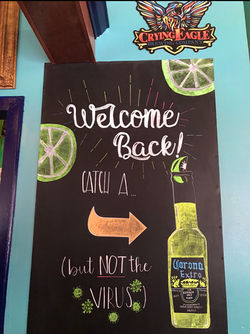 CRYING EAGLE
BREWING COMPANY
Welcome
Back!
CATCH A...
Corona
Extra
(but NOT the
VIRUS)